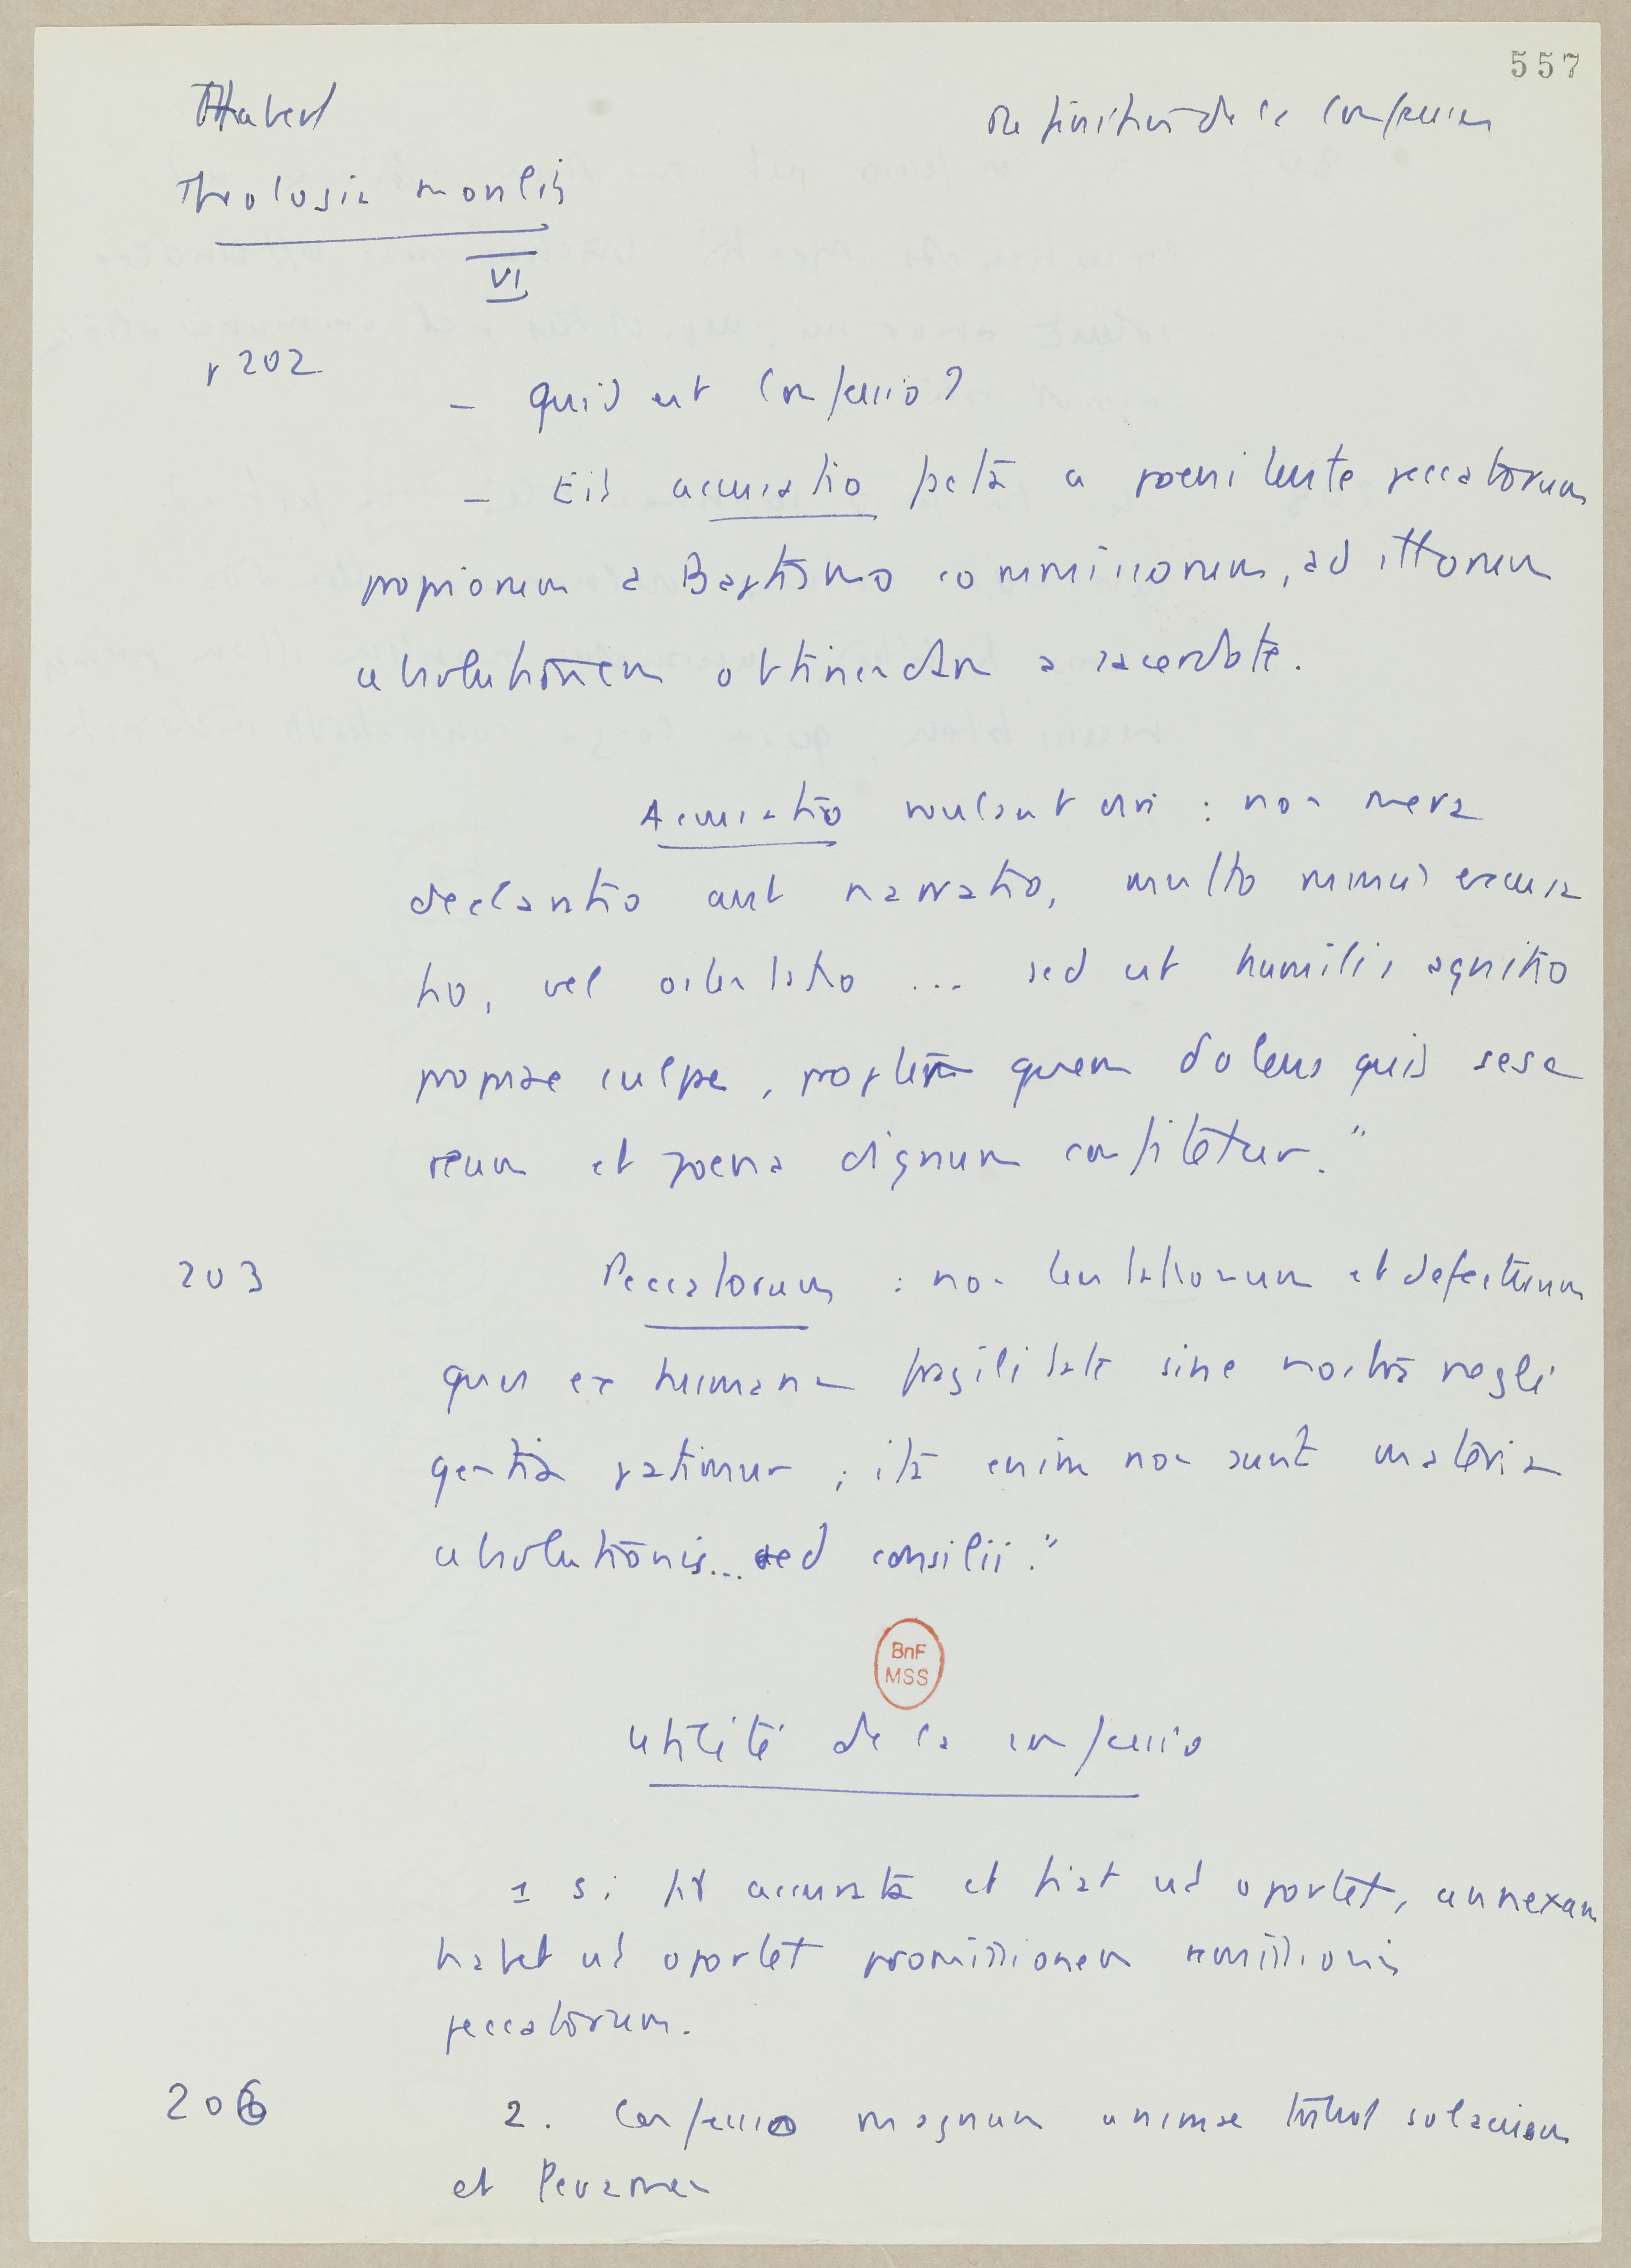 557
Habert
définition de la confession
Theologia moralis
VI
p 202
- Quid est Confessio?
- Est accusatio facta a poenitente peccatorum
propriorum a Baptismo commissorum, ad illorum
absolutionem obtinendam a sacerdote.
Accusatio : non mera
declaratio aut narratio, multo minus excusa
tio, vel ostentatio ... sed est humilis agnitio
propriae culpae, propter quam dolens quis sese
reum et poena dignum confitetur."
203
Peccatorum : non tentationum et defectuum
quos ex humana fragilitate sine nostra negli
gentia patimur ; ista enim non sunt materia
absolutionis... sed consilii."
BnF
MSS
Utilité de la confessio
1 Si sit accurata et fiat ut oportet, annexam
habet ut oportet promissionem remissionis
peccatorum.
206
2. Confessio magnum animae solacium
et